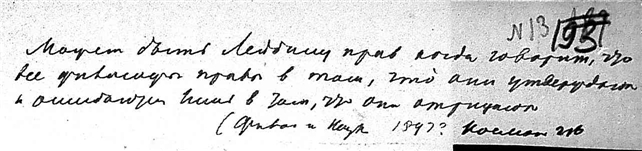 N 13
193
Может быть Лейбниц прав когда говорит, что
все философы правы в том, что они утверждают
и ошибаются лишь в том, что они отрицают
1897?